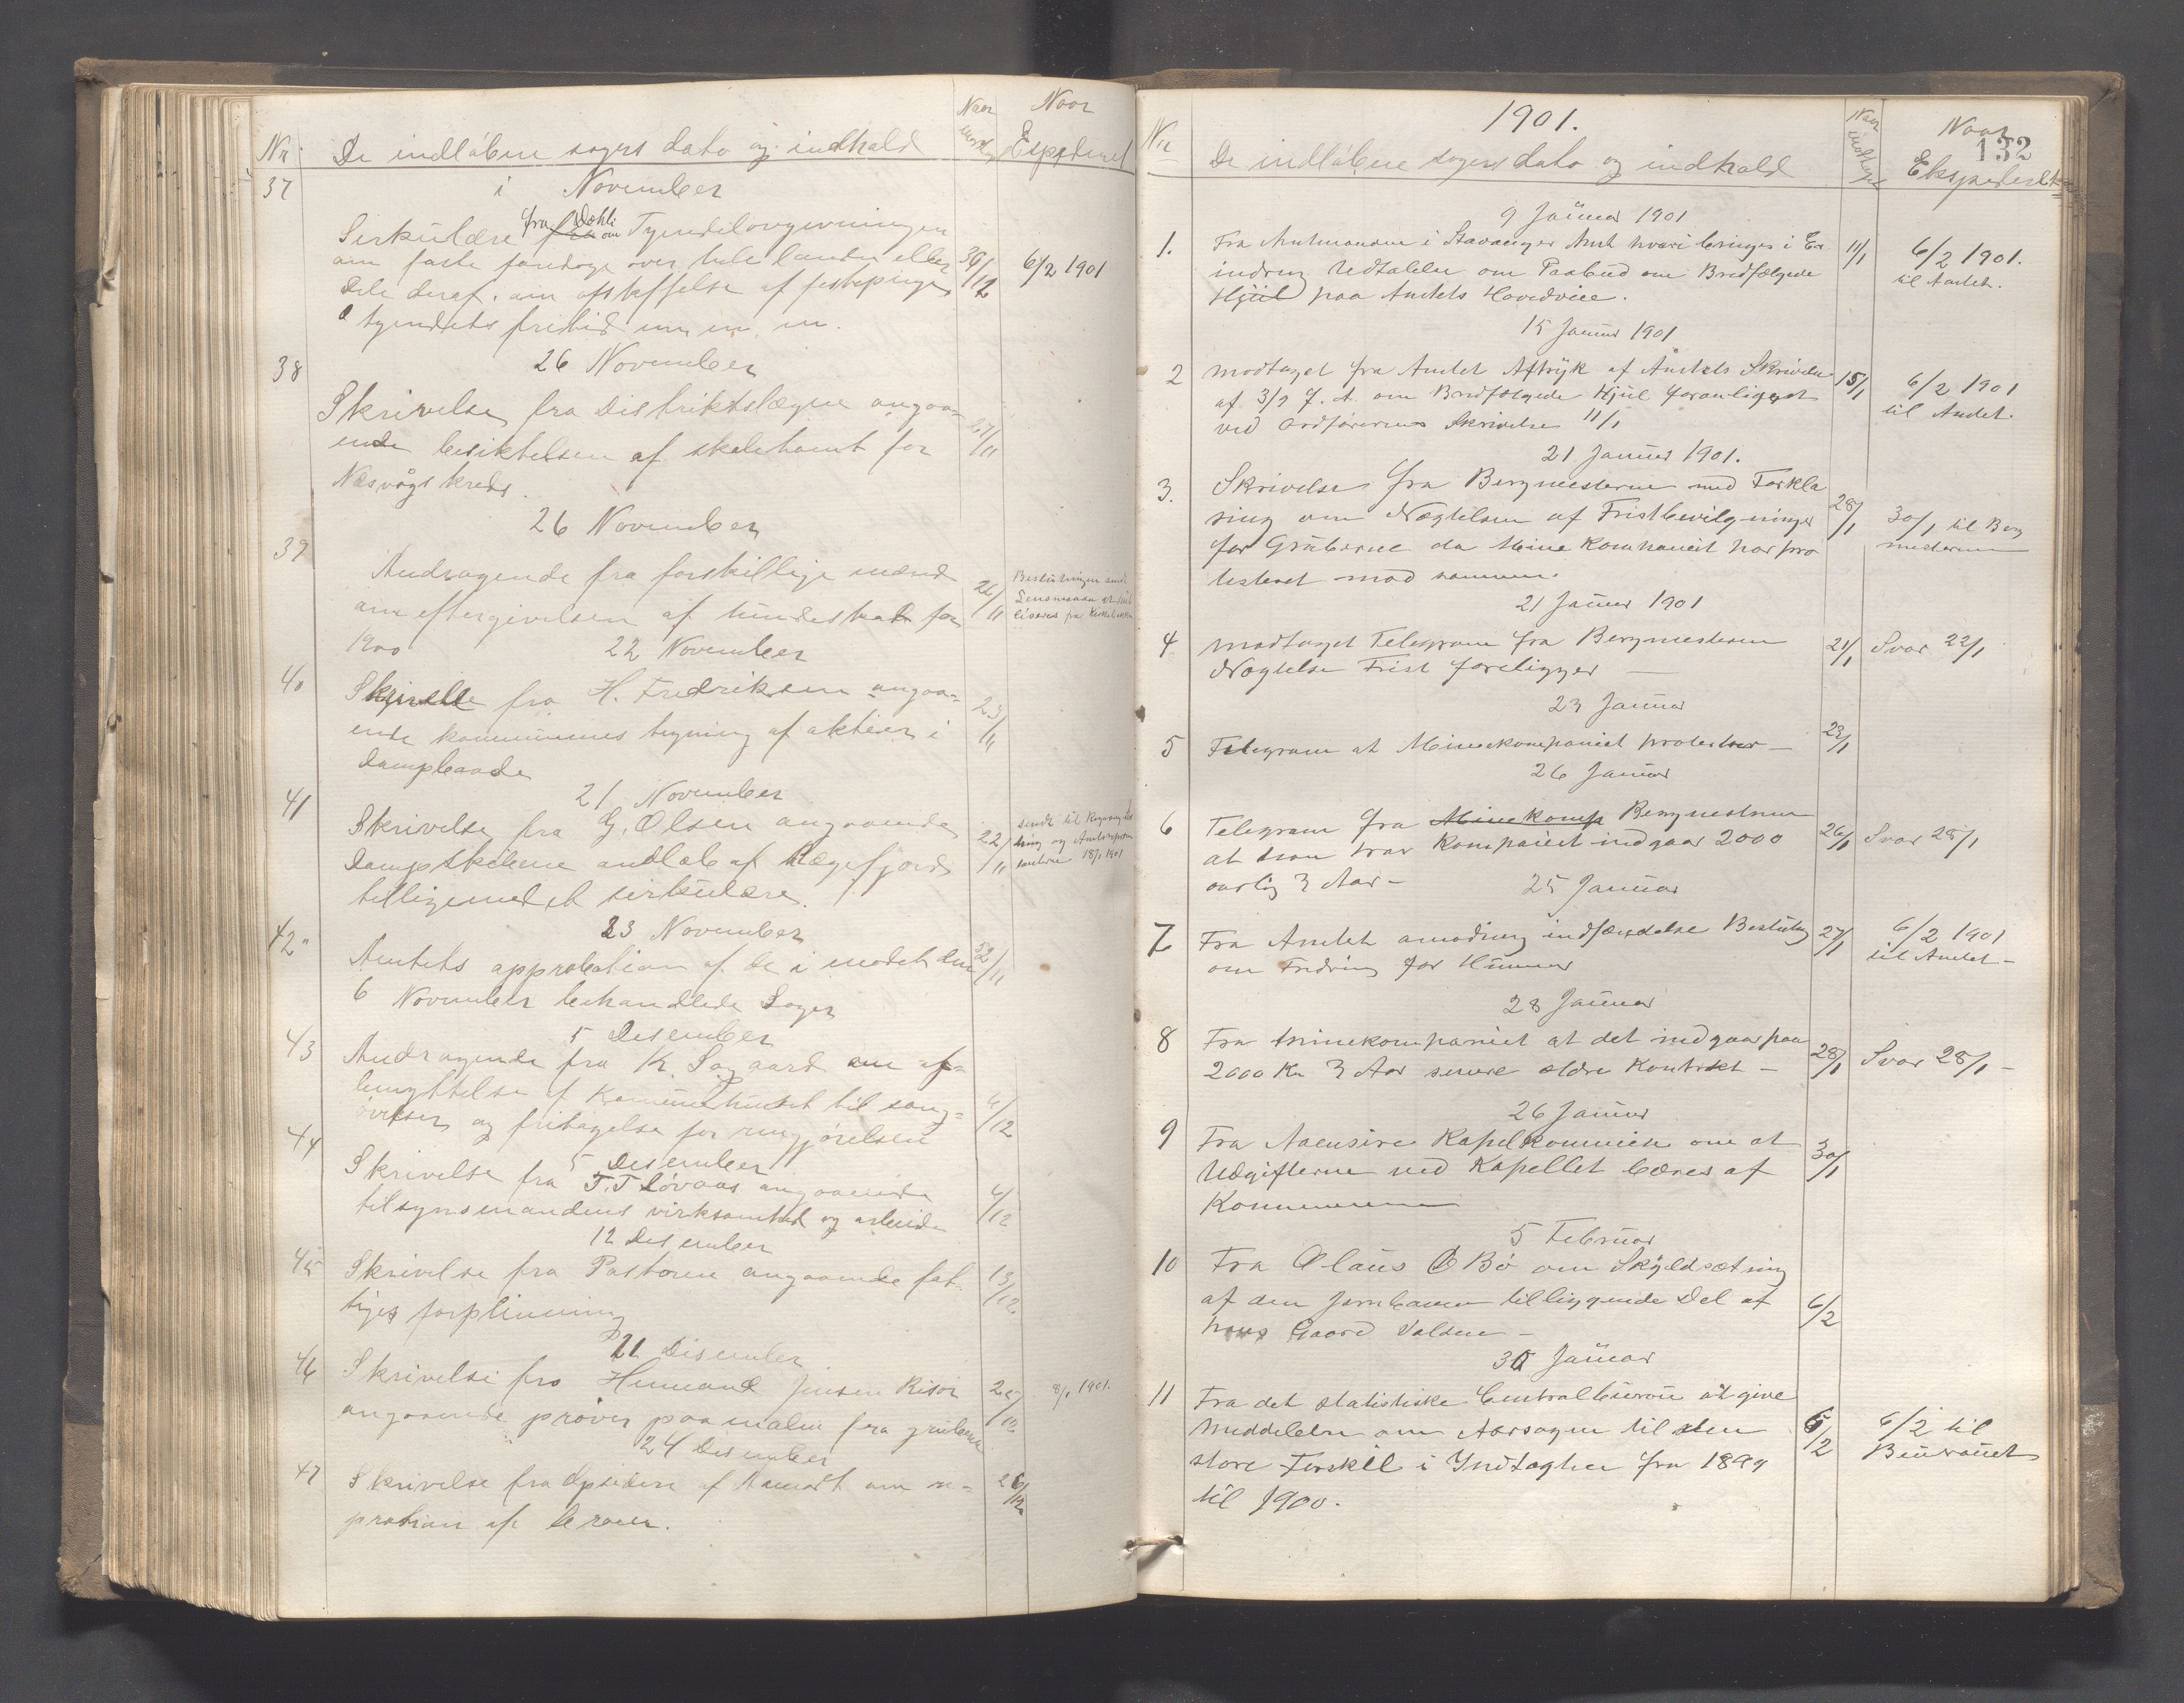 Nr. De indløbne sagers dato og indhold Naar modtaget Naar Expederet
37 i November
Sirkulære fra Dæhli om Tyendelovgivningen
om faste foredrage over hele landet eller 30/12 6/2 1901
dele deraf. om afskaffelse af festepenge
tyendets fritid m. m. m.
38 26 November
Skrivelse fra Distriktslægen angaa-
ende besiktelsen af skoletomt for 27/11
Næsvågs kreds.
39 26 November
Andragende fra forskillige mænd 26/11 Beslutningen sendt
om eftergivelsen af hundeskat for Lensmann
1900 22 November
40 Skrivelse fra H. Fredriksen angaa- 23/11
ende kommunens tegning af aktier i
Dampbaade
41 21 November
Skrivelse fra G. Olsen angaaende 22/11 sendt til
Dampskibene anløb af Rægefjord og Amts
tilligemed et sirkulære. 18/1 1901
42 23 November
Amtets approbation af de i mødet den
6 November behandlede Sager
43 5 Desember
Andragende fra K. Sogaard om af-
benyttelse af Kommunehuset til sang- 6/12
øvelser og fritagelse for rengjørelsen
44 5 Desember
Skrivelse fra T. T Løvaas angaaende 6/12
tilsynsmandens virksomhed og arbeide
12 Desember
45 Skrivelse fra Pastoren angaaende fat- 13/12
tiges forpleining
21 Desember
46 Skrivelse fra Humand Jensen Risør 8/1 1901.
angaaende prøver paa malm fra gruberne
24 Desember
47 Skrivelse fra af Aamodt om re- 26/12
pration af
132
1901.
Nr De indløbne sagers dato og indhold Naar modtaget Naar Ekspederet
9 Januar 1901
1. Fra Amtmanden i Stavanger Amt hvori bringes i Er 11/1 6/2 1901.
indring Udtalelse om Paabud om Bredfælgede til Amtet.
Hjul paa Amtets Hovedveie.
15 Januar 1901
2 modtaget fra Amtet Aftryk af Amtets Skrivelse 15/1 6/2 1901
af 3/9 f. A. om Bredfælgede Hjul foranlediget til Amtet.
ved Ordførerens Skrivelse 11/1
21 Januar 1901.
3. Skrivelse fra Bergmesteren med Forkla
ring om Nægtelsen af Fristbevilgninger 28/1 30/1 til Berg
for Gruberne da Mine Kompaneit har pro mesteren
testeret mod samme.
21 Januar 1901
4 modtaget Telegram fra Bergmesteren 21/1 Svar 22/1
Nægtelse Frist foreligger —
23 Januar
5 Telegram at Minekompaniet protesterer — 23/1
26 Januar
6 Telegram fra Minekomp Bergmesteren
at Kompaniet indgaar 2000 26/1 Svar 28/1
aarlig 3 Aar —
25 Januar
7 Fra Amtet anmodning indsendelse Beslutng 27/1 6/2 1901
om Fredning for Hummer til Amtet —
28 Januar
8 Fra minekompaniet at det indgaar paa
2000 Kr 3 Aar senere ældre Kontrakt — 28/1 Svar 28/1 —
26 Januar
9 Fra Aaensire Kapelkommision om at 30/1
Udgifterne ved Kapellet bæres af
Kommunen
5 Februar
10 Fra Olaus O Bø om Skyldsætning
af den Jernbanen tilliggende Del af 6/2
hans Gaard Valden —
30 Januar
11 Fra det statistiske Centralbureau at give
Meddelelse om Aarsagen til den 5/2 6/2 til
store Forskel i Indtagter fra 1899 Bureauet
til 1900.